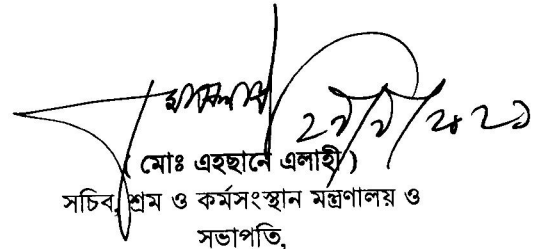 ( মোঃ এহছানে এলাহী )
সচিব, শ্রম ও কর্মসংস্থান মন্ত্রণালয় ও
সভাপতি,